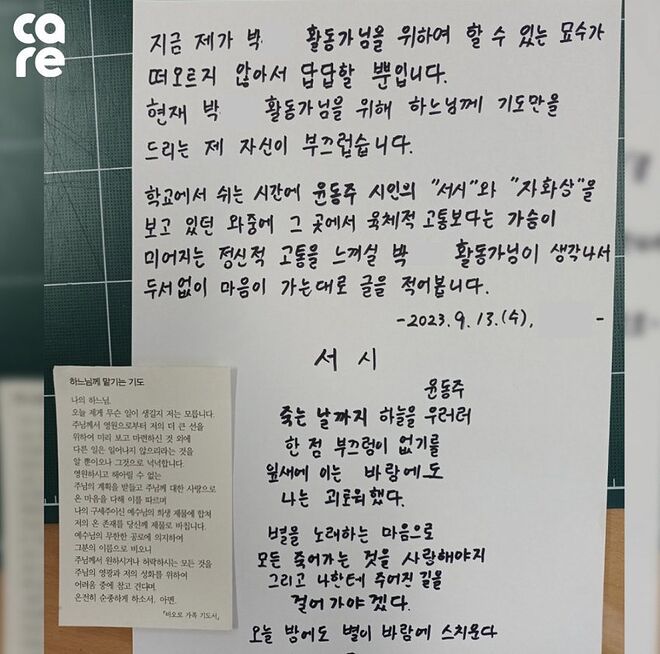 care
지금 제가 박 활동가님을 위하여 할 수 있는 묘수가
떠오르지 않아서 답답할 뿐입니다.
현재 박 활동가님을 위해 하느님께 기도만을
드리는 제 자신이 부끄럽습니다.
학교에서 쉬는 시간에 윤동주 시인의 "서시"와 "자화상"을
보고 있던 와중에 그 곳에서 육체적 고통보다는 가슴이
미어지는 정신적 고통을 느끼실 박 활동가님이 생각나서
두서없이 마음이 가는대로 글을 적어봅니다.
-2023.9.13.(수), -
서시
윤동주
죽는 날까지 하늘을 우러러
한 점 부끄럼이 없기를
잎새에 이는 바람에도
나는 괴로워했다.
별을 노래하는 마음으로
모든 죽어가는 것을 사랑해야지
그리고 나한테 주어진 길을
걸어가야겠다.
오늘 밤에도 별이 바람에 스치운다
하느님께 맡기는 기도
나의 하느님,
오늘 제게 무슨 일이 생길지 저는 모릅니다.
주님께서 영원으로부터 저의 더 큰 선을
위하여 미리 보고 마련하신 것 외에
다른 일은 일어나지 않으리라는 것을
알 뿐이오나 그것으로 넉넉합니다.
영원하시고 헤아릴 수 없는
주님의 계획을 받들고 주님께 대한 사랑으로
온 마음을 다해 이를 따르며
나의 구세주이신 예수님의 희생 제물에 합쳐
저의 온 존재를 당신께 제물로 바칩니다.
예수님의 무한한 공로에 의지하여
그분의 이름으로 비오니
주님께서 원하시거나 허락하시는 모든 것을
주님의 영광과 저의 성화를 위하여
어려움 중에 참고 견디며
온전히 순종하게 하소서. 아멘.
「바오로 가족 기도서」